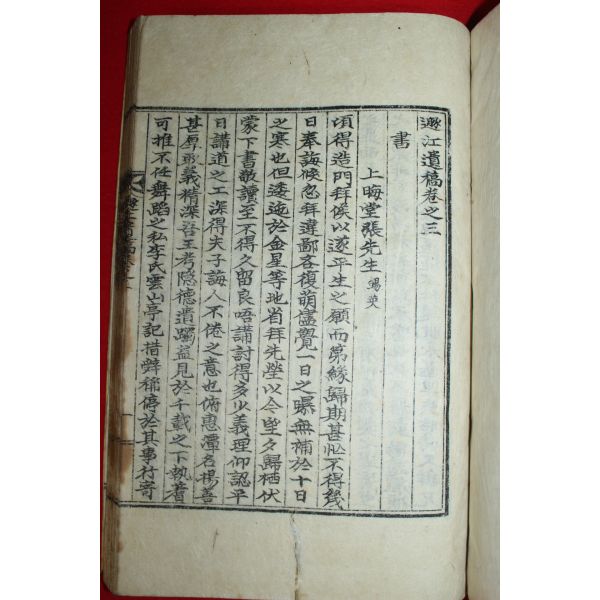 遯江遺稿卷之三
書
上晦堂張先生 錫英
頃得造門拜候以遂平生之願而第緣歸期甚忙不得幾
日奉誨候忽拜違鄙吝復萌儘覺一日之曝無補於十日
之寒也但逶迤於金星等地省拜先塋以今望夕歸栖伏
蒙下書敬讀至不得久留良唔講討得多少義理仰認平
日講道之工深得夫子誨人不倦之意也俯惠潭名揚善
甚厚取義精深吾王考隱德遺躅益見於千載之下執着
可推不任舞蹈之私李氏雲山亭記措辭稱停於其事行寄